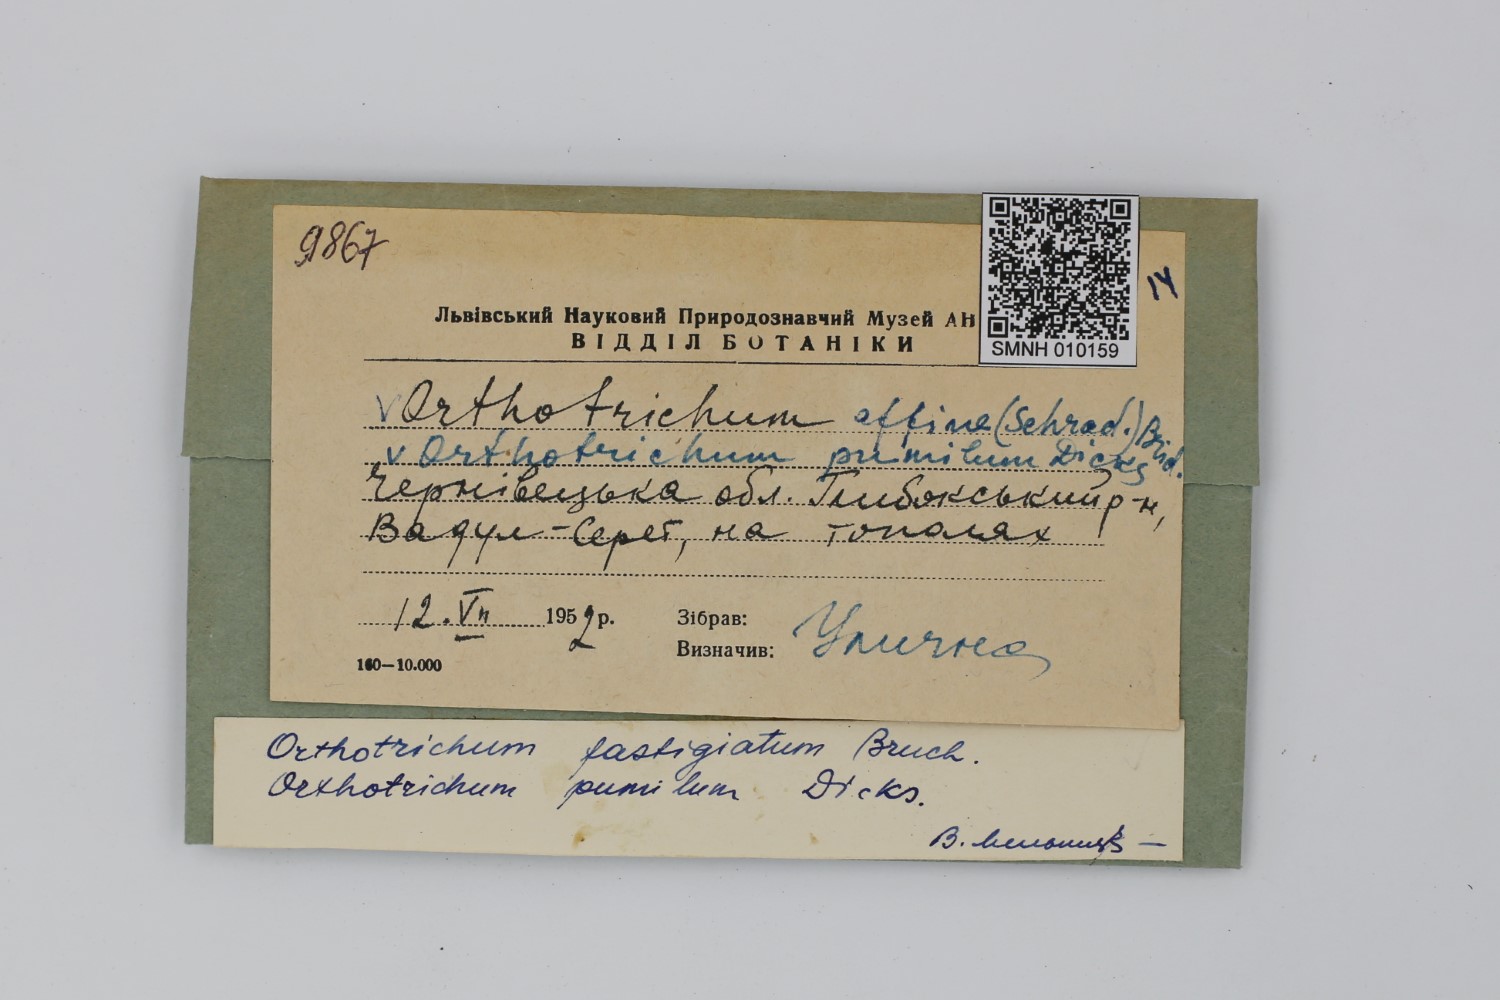 9867
14
Львівський Науковий Природознавчий Музей АН
ВІДДІЛ БОТАНІКИ
SMNH 010159
v Orthotrichum affine (Schrad.) Brid.
v Orthotrichum pumilum Dicks
Чернівецька обл. Глибокський р-н,
Вадул-Серет, на тополях
12.VII 1952 р.
Зібрав:
Визначив: Улична
160—10.000
Orthotrichum fastigiatum Bruch.
Orthotrichum pumilum Dicks.
В.